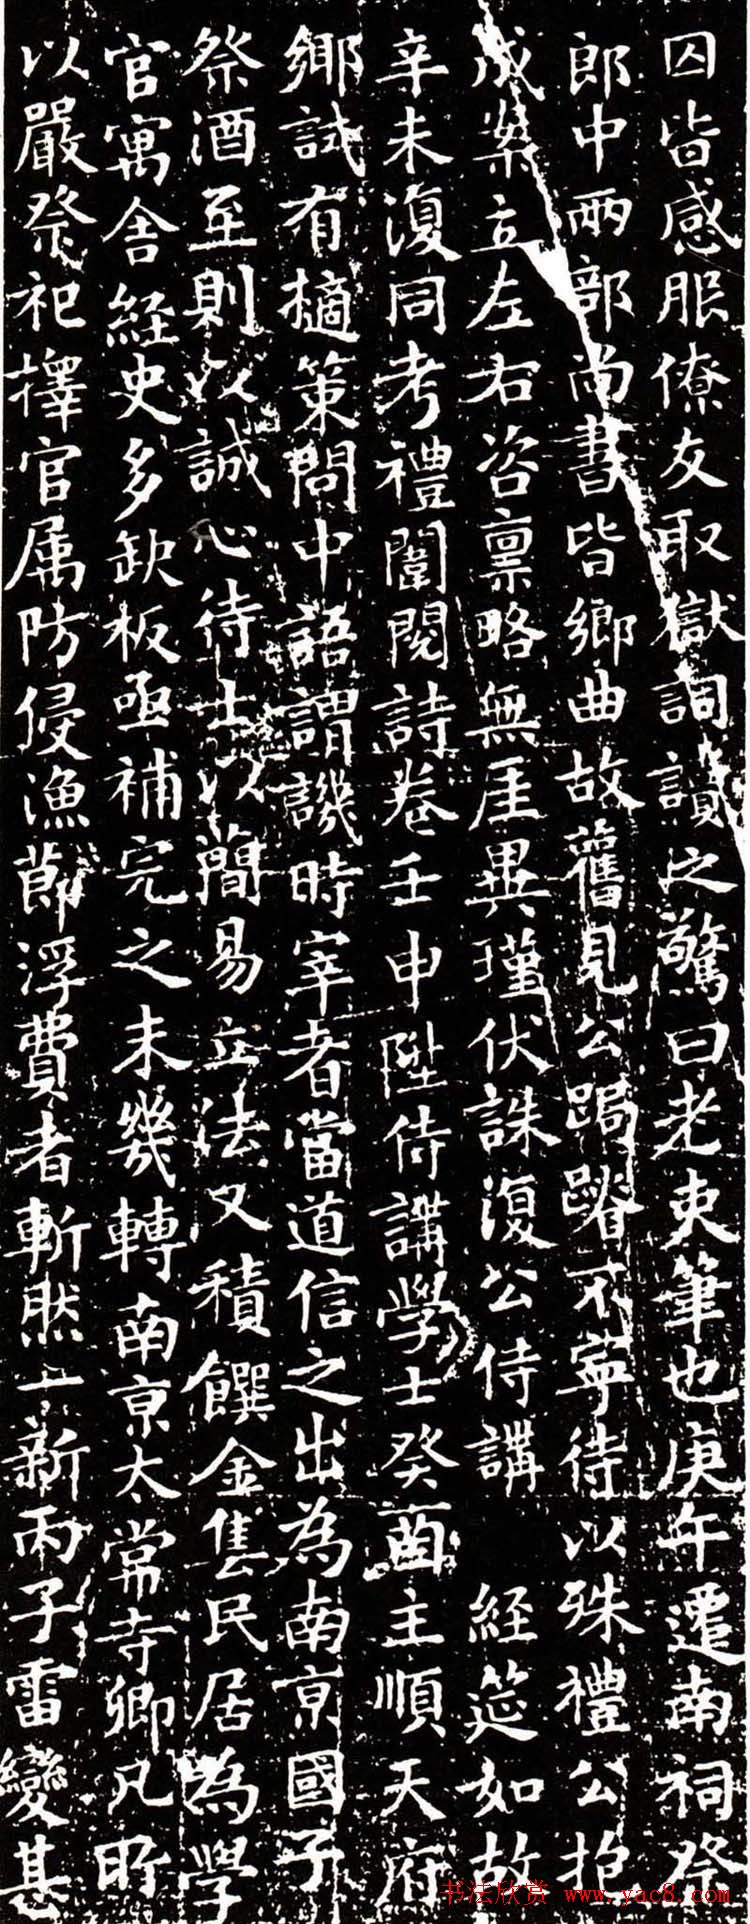 囚皆感服僚友取獄詞讀之驚曰老吏筆也庚午遷南祠祭
郎中兩部尚書皆鄉曲故舊見公跼蹐不寧待以殊禮公抱
成案立左右咨稟略無厓異瑾伏誅復公侍講 經筵如故
辛未復同考禮闈閱詩卷壬申陞侍講學士癸酉主順天府
鄉試有擿策問中語謂譏時宰者當道信之出為南京國子
祭酒至則以誠心待士以簡易立法又積饌金售民居為學
官寓舍經史多缺板亟補完之未幾轉南京太常寺卿凡所
以嚴祭祀擇官属防侵漁節浮費者斬然一新丙子雷變其
书法欣赏 www.yac8.com